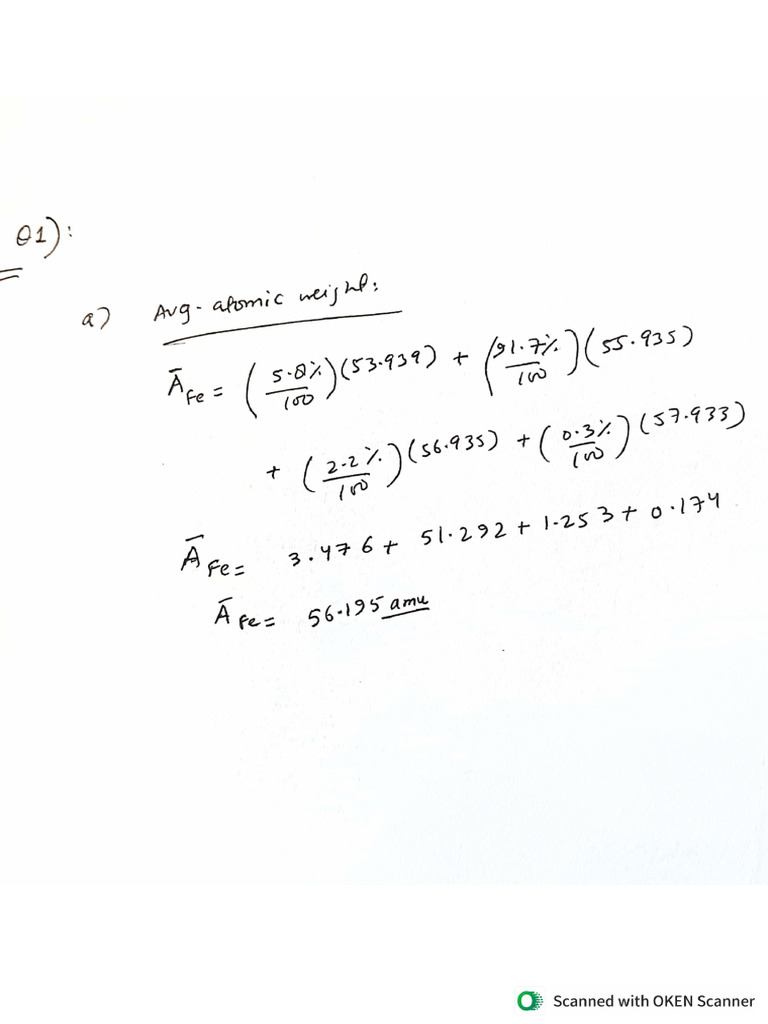 Q1):
a) Avg. atomic weight:
Ā Fe = (5.8%/100)(53.939) + (91.7%/100)(55.935)
+ (2.2%/100)(56.935) + (0.3%/100)(57.933)
Ā Fe = 3.476 + 51.292 + 1.253 + 0.174
Ā Fe = 56.195 amu
Scanned with OKEN Scanner